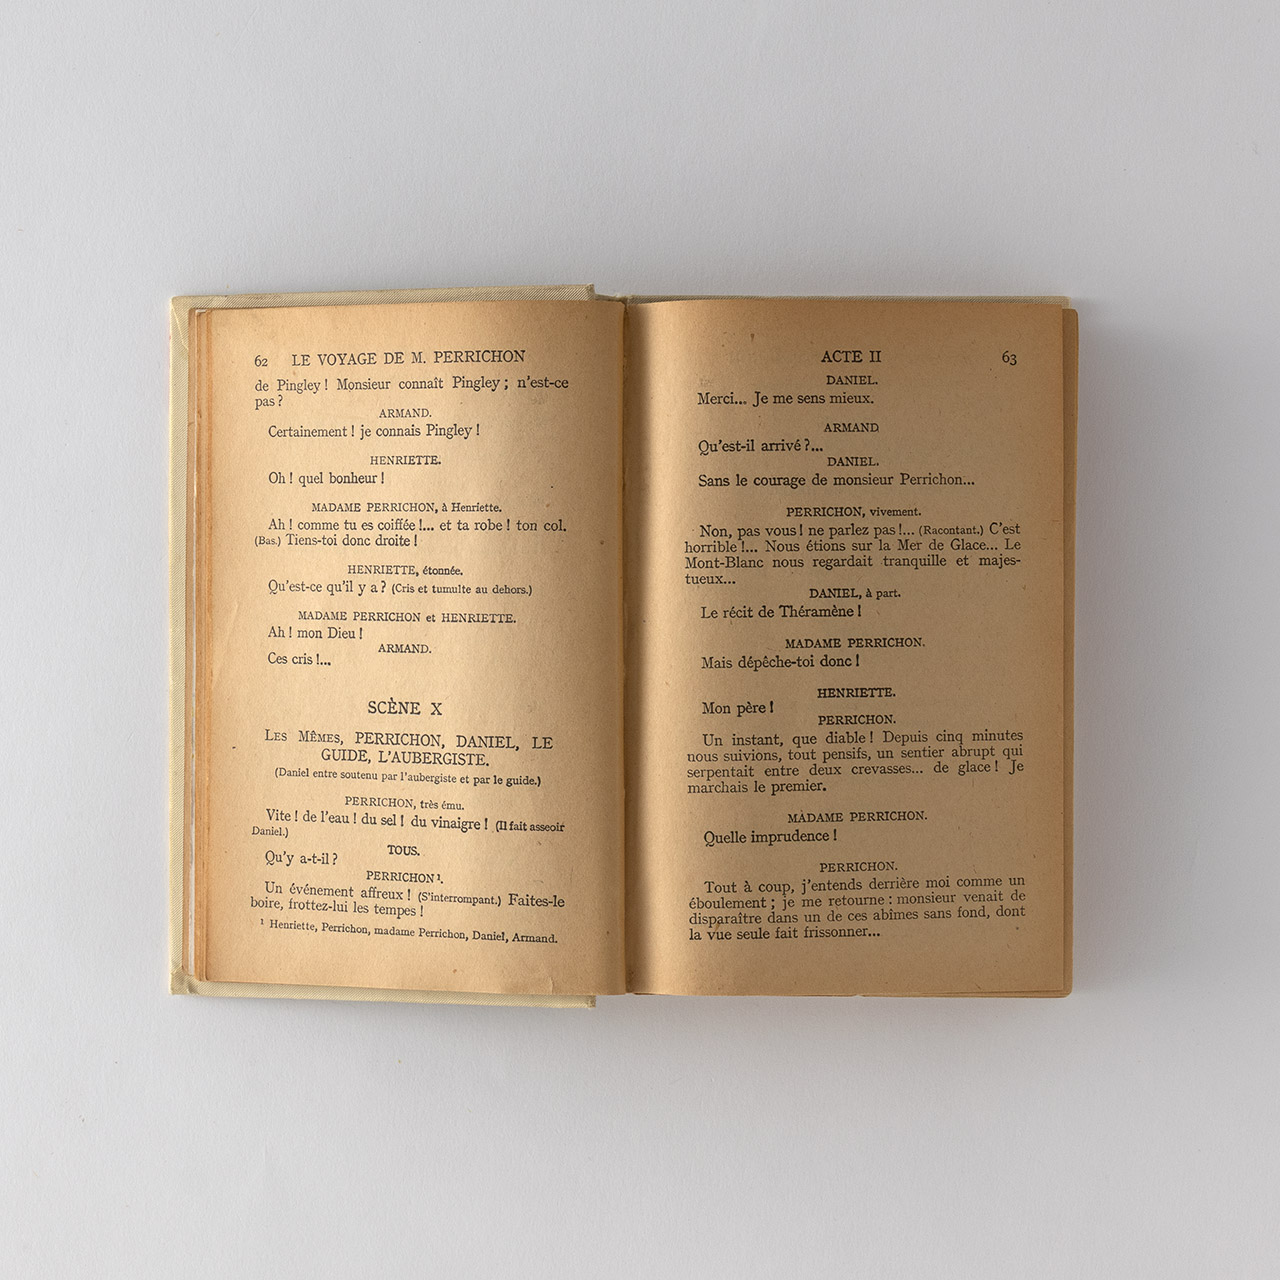 62 LE VOYAGE DE M. PERRICHON
de Pingley ! Monsieur connaît Pingley ; n'est-ce
pas ?
ARMAND.
Certainement ! je connais Pingley !
HENRIETTE.
Oh ! quel bonheur !
MADAME PERRICHON, à Henriette.
Ah ! comme tu es coiffée !... et ta robe ! ton col.
(Bas.) Tiens-toi donc droite !
HENRIETTE, étonnée.
Qu'est-ce qu'il y a ? (Cris et tumulte au dehors.)
MADAME PERRICHON et HENRIETTE.
Ah ! mon Dieu !
ARMAND.
Ces cris !...
SCÈNE X
LES MÊMES, PERRICHON, DANIEL, LE
GUIDE, L'AUBERGISTE.
(Daniel entre soutenu par l'aubergiste et par le guide.)
PERRICHON, très ému.
Vite ! de l'eau ! du sel ! du vinaigre ! (Il fait asseoir
Daniel.)
TOUS.
Qu'y a-t-il ?
PERRICHON¹.
Un événement affreux ! (S'interrompant.) Faites-le
boire, frottez-lui les tempes !
¹ Henriette, Perrichon, madame Perrichon, Daniel, Armand.
ACTE II 63
DANIEL.
Merci... Je me sens mieux.
ARMAND
Qu'est-il arrivé ?...
DANIEL.
Sans le courage de monsieur Perrichon...
PERRICHON, vivement.
Non, pas vous ! ne parlez pas !... (Racontant.) C'est
horrible !... Nous étions sur la Mer de Glace... Le
Mont-Blanc nous regardait tranquille et majes-
tueux...
DANIEL, à part.
Le récit de Théramène !
MADAME PERRICHON.
Mais dépêche-toi donc !
HENRIETTE.
Mon père !
PERRICHON.
Un instant, que diable ! Depuis cinq minutes
nous suivions, tout pensifs, un sentier abrupt qui
serpentait entre deux crevasses... de glace ! Je
marchais le premier.
MADAME PERRICHON.
Quelle imprudence !
PERRICHON.
Tout à coup, j'entends derrière moi comme un
éboulement ; je me retourne : monsieur venait de
disparaître dans un de ces abîmes sans fond, dont
la vue seule fait frissonner...